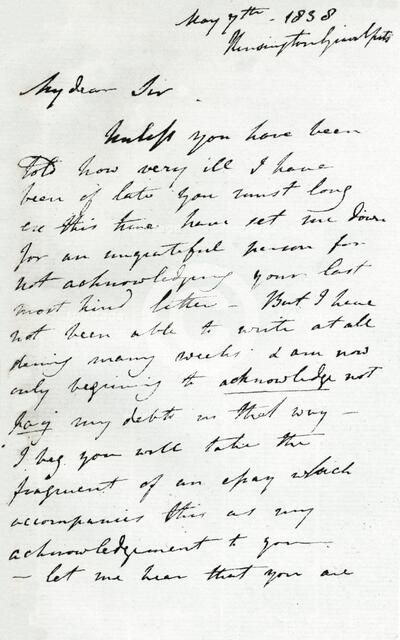 May 7th - 1838
Kensington Gravel Pits
My dear Sir
Unless you have been
Told how very ill I have
been of late you must long
ere this time have set me down
for an ungrateful person for
not acknowledging your last
most kind letter - But I have
not been able to write at all
during many weeks & am now
only beginning to acknowledge not
pay my debts in that way -
I beg you will take the
fragment of an essay which
accompanies this as my
acknowledgement to you -
- let me hear that you are